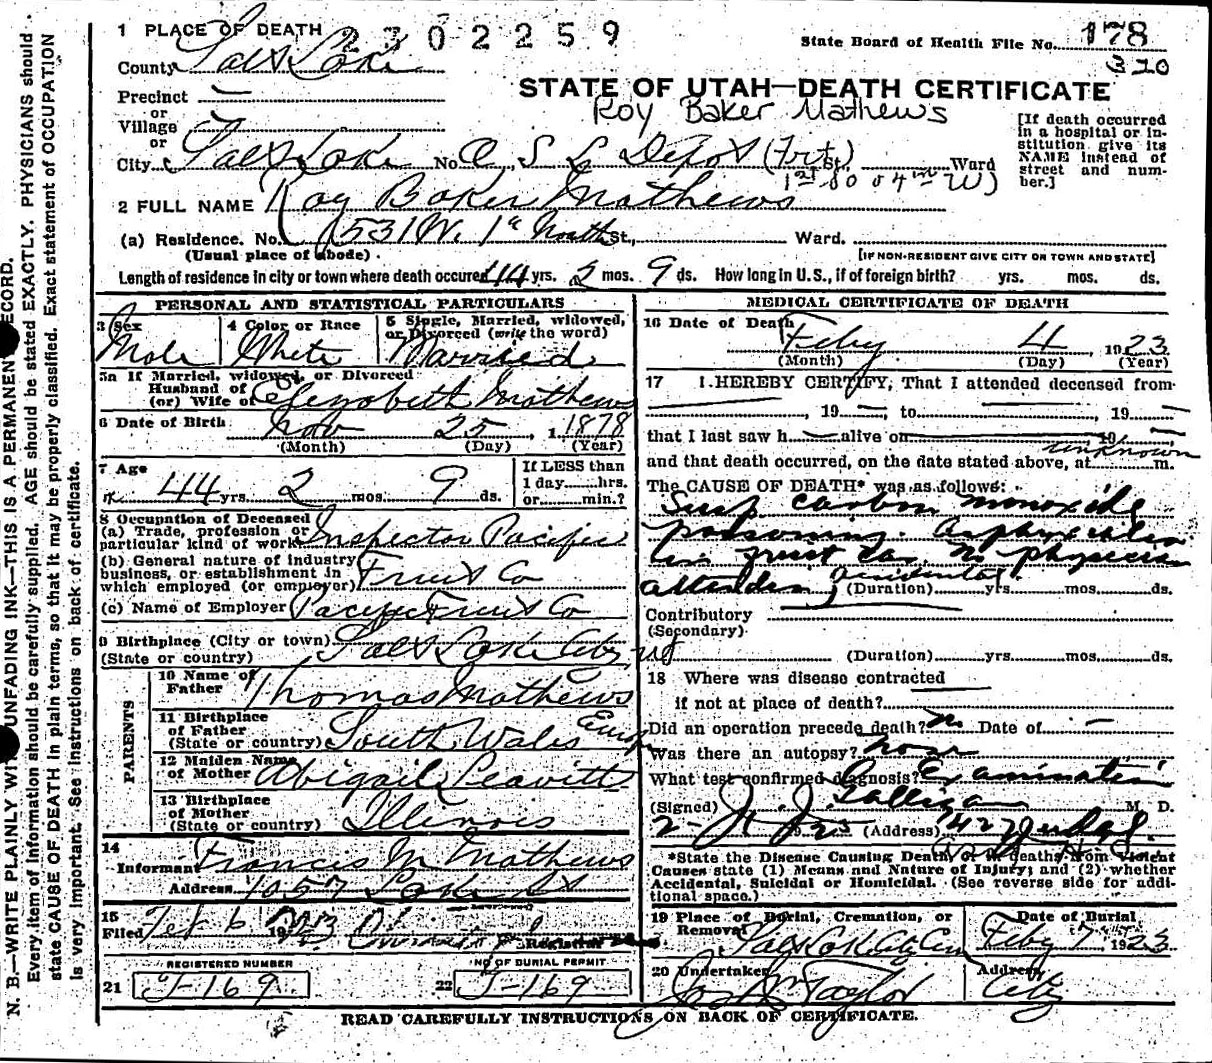 1 PLACE OF DEATH 2302259
State Board of Health File No. 178
320
County Salt Lake
STATE OF UTAH—DEATH CERTIFICATE
Roy Baker Mathews
Precinct
or
Village
or
City Salt Lake No. O S L Depot (Frt St.) Ward
1st So & 4th W)
[If death occurred in a hospital or institution give its NAME instead of street and number.]
2 FULL NAME Roy Baker Mathews
(a) Residence. No. 531 W. 1st North St., Ward.
(Usual place of abode) [IF NON-RESIDENT GIVE CITY OR TOWN AND STATE]
Length of residence in city or town where death occured 44 yrs. 2 mos. 9 ds. How long in U.S., if of foreign birth? yrs. mos. ds.
PERSONAL AND STATISTICAL PARTICULARS
3 Sex Male
4 Color or Race White
5 Single, Married, widowed, or Divorced (write the word) Married
5a If Married, widowed, or Divorced
Husband of
(or) Wife of Elizabeth Mathews
6 Date of Birth Nov 25, 1878
(Month) (Day) (Year)
7 Age 44 yrs. 2 mos. 9 ds.
If LESS than
1 day hrs.
or min.?
8 Occupation of Deceased
(a) Trade, profession or
particular kind of work Inspector Pacific
(b) General nature of industry
business, or establishment in
which employed (or employer) Fruit Co
(c) Name of Employer Pacific Fruit Co
9 Birthplace (City or town) Salt Lake City, Ut
(State or country)
PARENTS
10 Name of
Father Thomas Mathews
11 Birthplace
of Father
(State or country) South Wales
12 Maiden Name
of Mother Abigail Leavitt
13 Birthplace
of Mother
(State or country) Illinois
14
Informant Francis M Mathews
Address 1057 Lake St
15
Filed Feb 6 1923
Registrar
REGISTERED NUMBER
21 J-169
NO OF BURIAL PERMIT
22 J-169
MEDICAL CERTIFICATE OF DEATH
16 Date of Death
Feby 4, 1923
(Month) (Day) (Year)
17 I HEREBY CERTIFY, That I attended deceased from
, 19 , to , 19
that I last saw h alive on 19 ,
and that death occurred, on the date stated above, at unknown m.
The CAUSE OF DEATH* was as follows:
Susp carbon monoxide
poisoning. Asphyxiation
in fruit car. No physician
attending accidental.
(Duration) yrs. mos. ds.
Contributory
(Secondary)
(Duration) yrs. mos. ds.
18 Where was disease contracted
if not at place of death?
Did an operation precede death? no Date of —
Was there an autopsy? none
What test confirmed diagnosis? Examination
(Signed) J. J. Galligan M. D.
2-5 1923 (Address) 427 Judge
*State the Disease Causing Death, or in deaths from Violent
Causes state (1) Means and Nature of Injury; and (2) whether
Accidental, Suicidal or Homicidal. (See reverse side for additional space.)
19 Place of Burial, Cremation, or
Removal Salt Lake City Cem
Date of Burial
Feby 7 1923
20 Undertaker Jos Wm Taylor
Address City
READ CAREFULLY INSTRUCTIONS ON BACK OF CERTIFICATE.
N. B.—WRITE PLAINLY WITH UNFADING INK—THIS IS A PERMANENT RECORD.
Every item of information should be carefully supplied. AGE should be stated EXACTLY. PHYSICIANS should
state CAUSE OF DEATH in plain terms, so that it may be properly classified. Exact statement of OCCUPATION
is very important. See instructions on back of certificate.